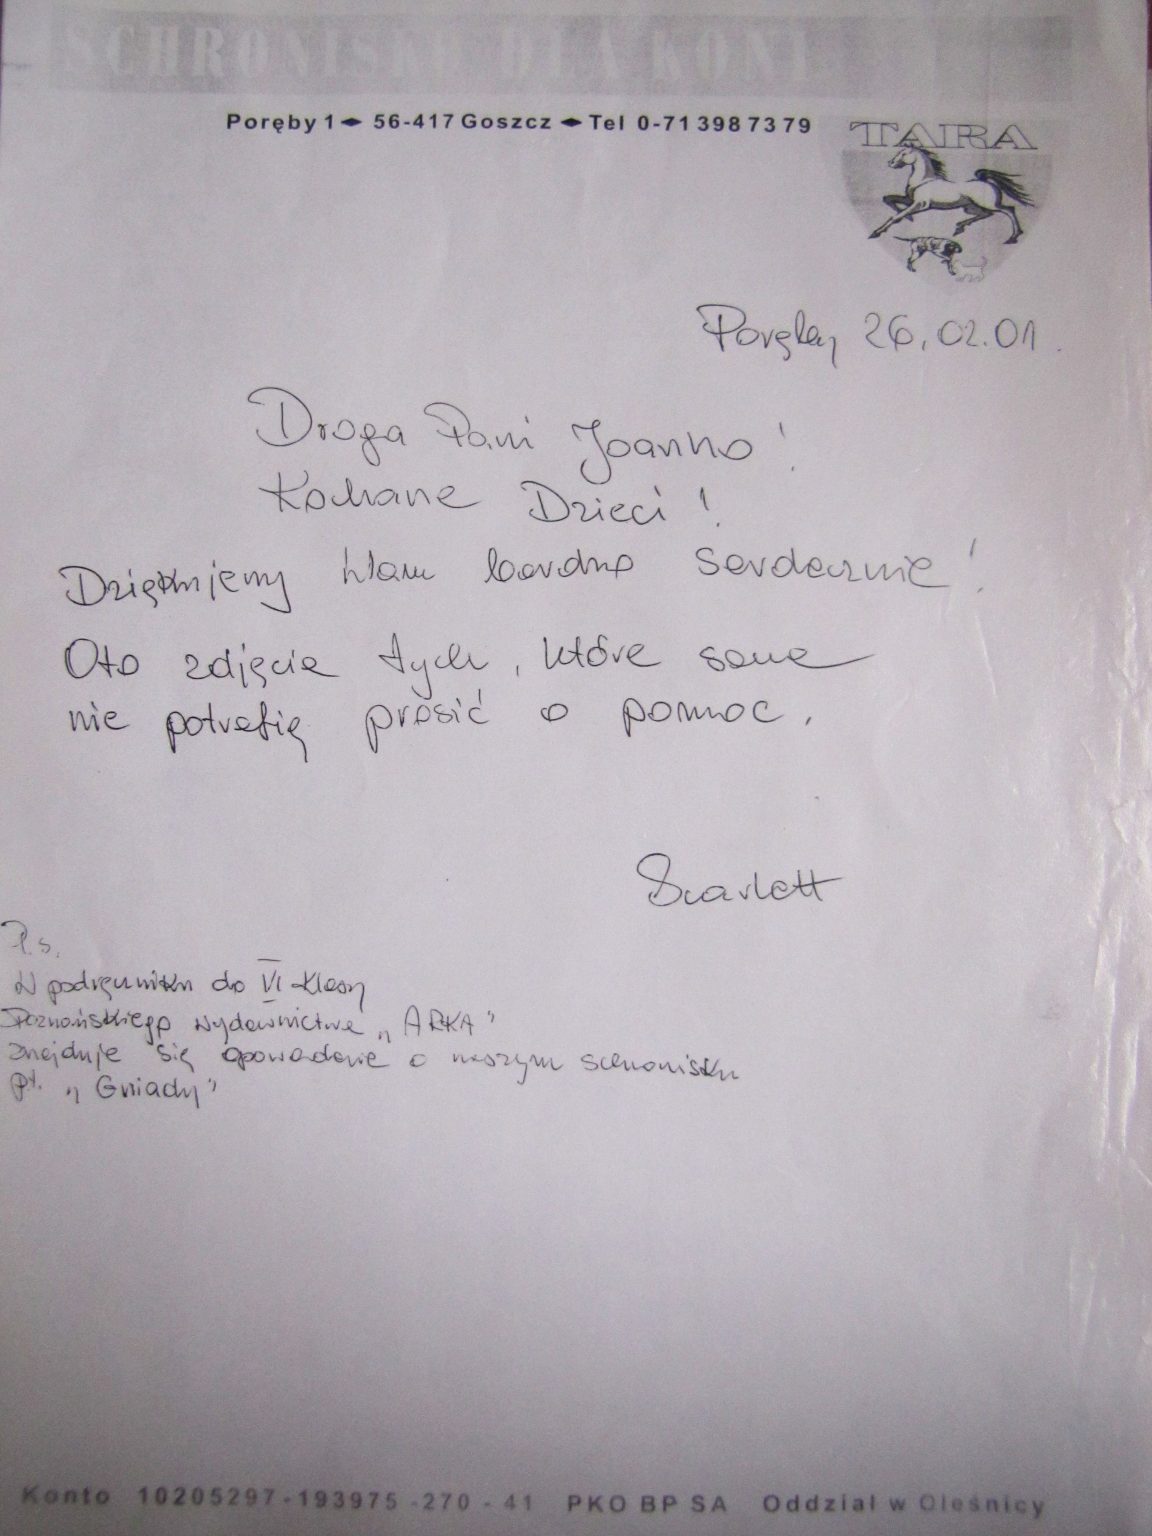 SCHRONISKO DLA KONI
Poręby 1 56-417 Goszcz Tel 0-71 398 73 79
TARA
Poręby 26.02.01.
Droga Pani Joanno!
Kochane Dzieci!
Dziękujemy Wam bardzo serdecznie!
Oto zdjęcia tych, które same
nie potrafią prosić o pomoc.
Scarlett
P.s.
W podręczniku do VI klasy
Poznańskiego wydawnictwa „ARKA"
znajduje się opowiadanie o naszym schronisku
pt. „Gniady"
Konto 10205297-193975-270-41 PKO BP SA Oddział w Oleśnicy